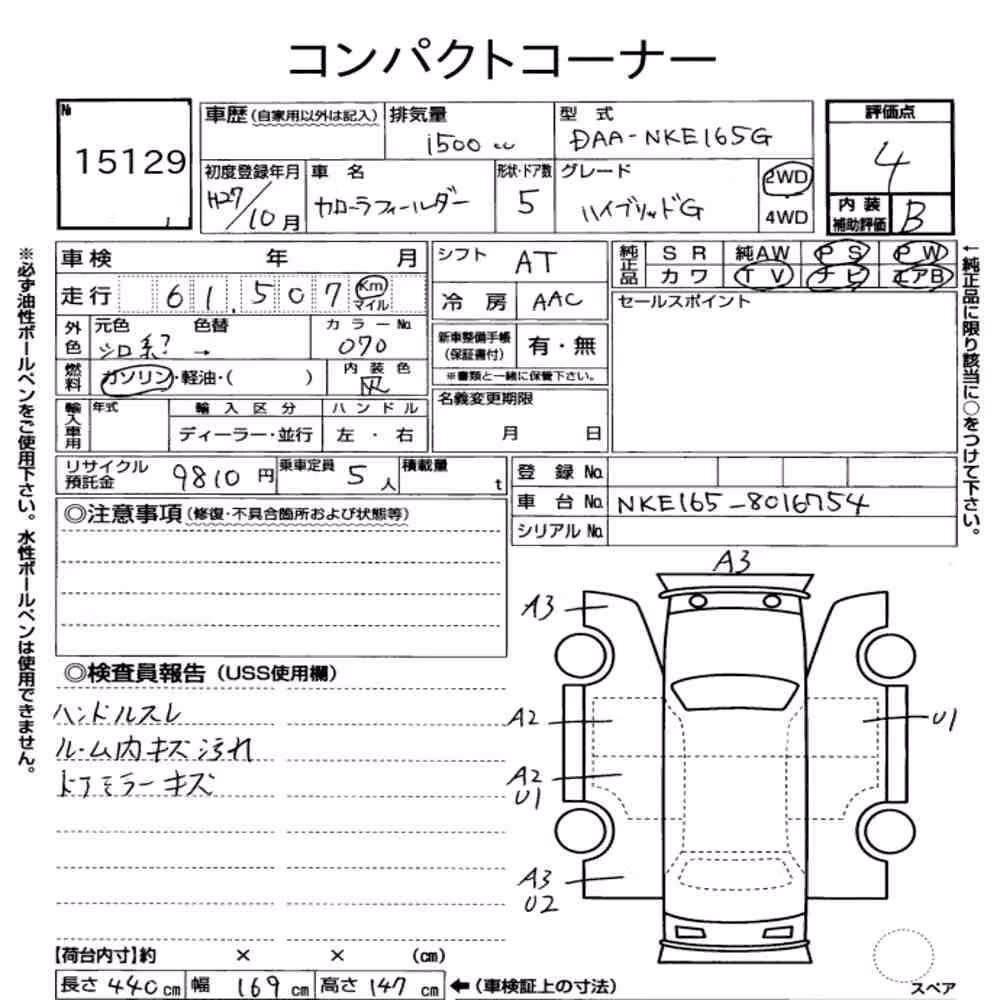 コンパクトコーナー
№ 15129
車歴 (自家用以外は記入) 排気量 1500 cc 型式 DAA-NKE165G
評価点 4
初度登録年月 H27/10月 車名 カローラフィールダー 形状・ドア数 5 グレード ハイブリッドG 2WD 4WD
内装補助評価 B
車検 年 月
シフト AT
純正品 SR 純AW PS PW
カワ TV ナビ エアB
走行 61,507 Km マイル
冷房 AAC
セールスポイント
外色 元色 シロ系? 色替 → カラーNo. 070
新車整備手帳 (保証書付) 有・無
※書類と一緒に保管下さい。
燃料 ガソリン・軽油・( ) 内装色 灰
名義変更期限 月 日
輸入車用 年式 輸入区分 ハンドル
ディーラー・並行 左・右
リサイクル預託金 9810円 乗車定員 5人 積載量 t
登録No.
車台No. NKE165-8016754
シリアルNo.
◎注意事項 (修復・不具合箇所および状態等)
◎検査員報告 (USS使用欄)
ハンドルスレ
ルーム内キズ汚れ
ドアミラーキズ
A3
A3
A2
U1
A2
U1
A3
U2
【荷台内寸】約 × × (cm)
長さ 440cm 幅 169cm 高さ 147cm ←(車検証上の寸法)
スペア
※必ず油性ボールペンをご使用下さい。水性ボールペンは使用できません。
←純正品に限り該当に○をつけて下さい。